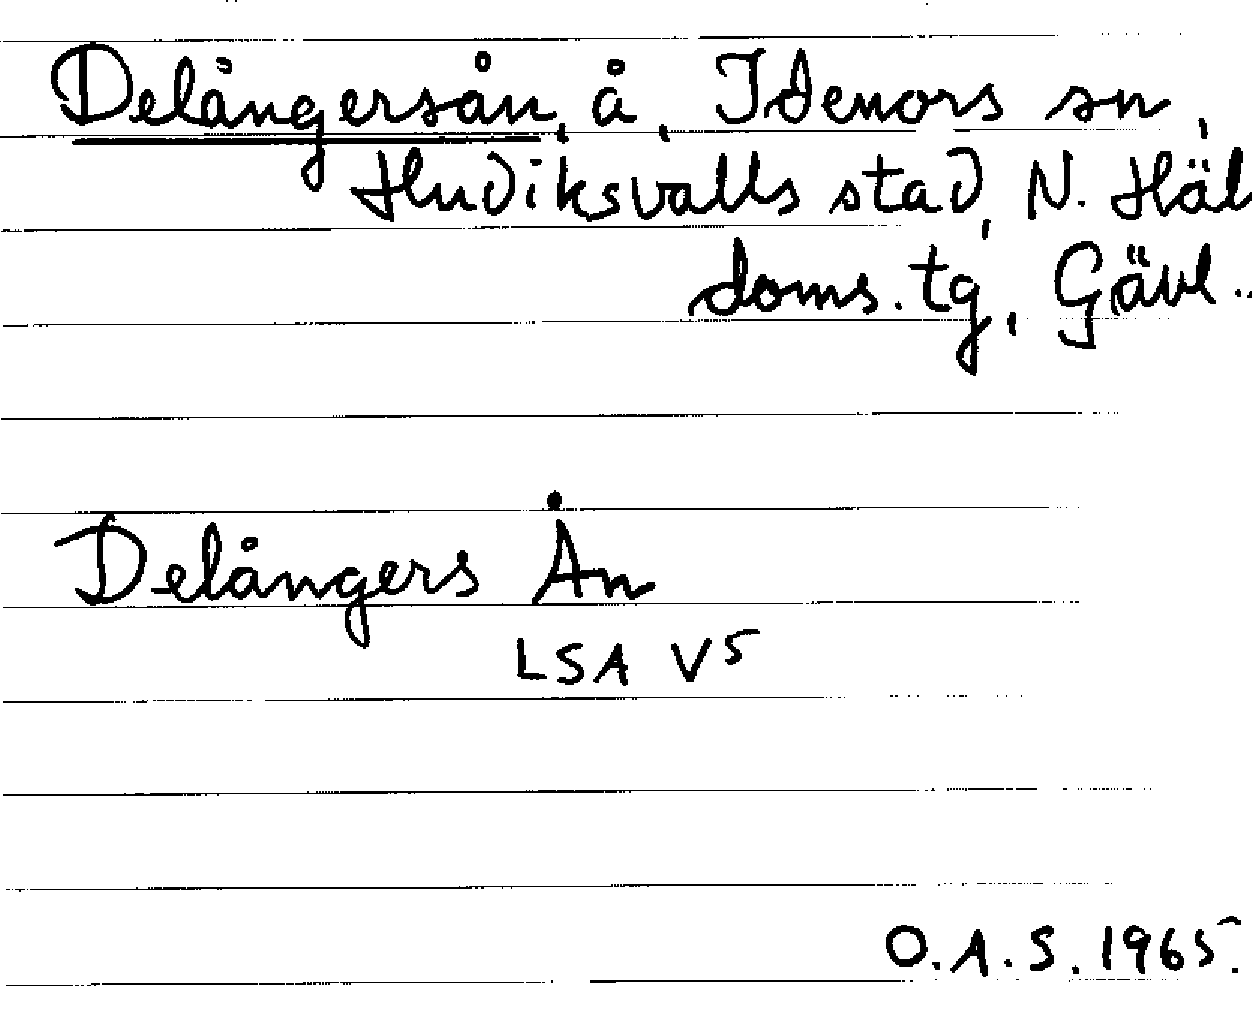 Delångersån, å, Idenors sn,
Hudiksvalls stad, N. Häl
doms. tg, Gävl..
Delångers Ån
LSA V5
O.A.S. 1965.